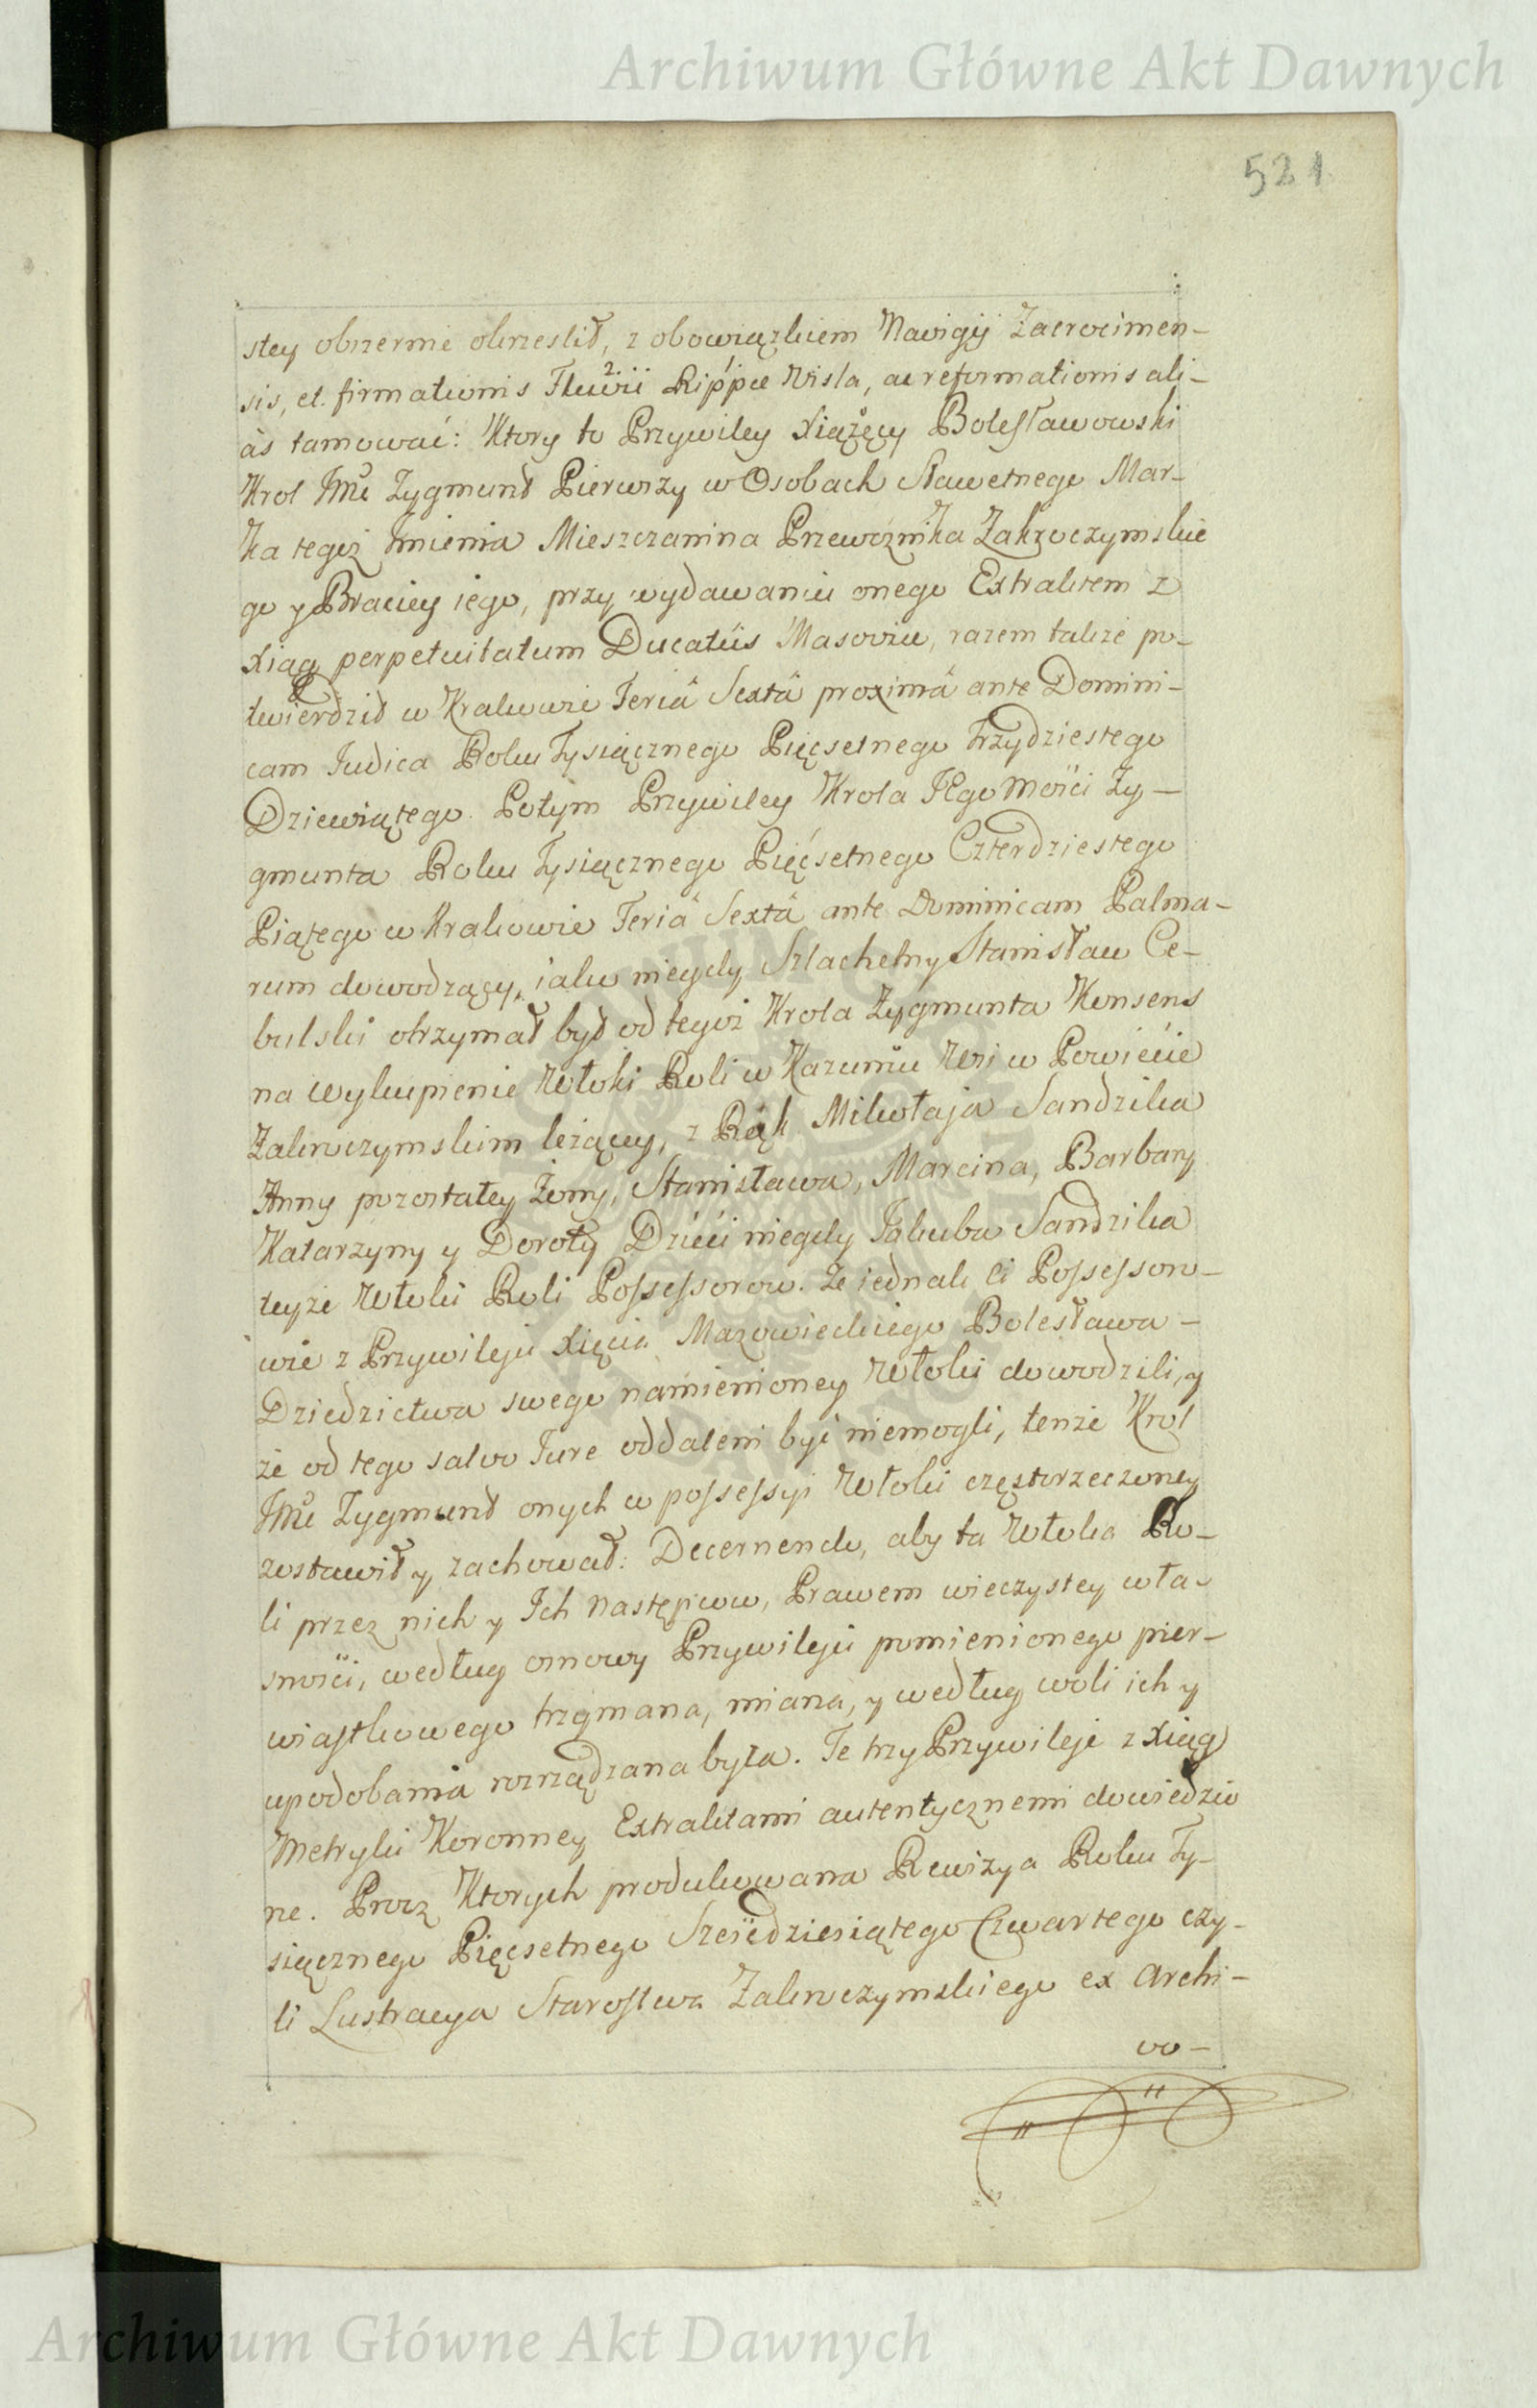 Archiwum Główne Akt Dawnych
521
stey obszernie okrzeslił, z obowiązkiem Navigÿ Zacrocimen-
sis, et. firmationis Fluvii Rippæ Wisla, ac reformationis ali-
às tamować: Ktory to Przywiley Xiążęcy Bolesławowski
Krol Jmć Zygmund Pierwszy w Osobach Sławetnego Mar-
ka tegoż Jmienia Mieszczanina Przewoznika Zakroczymskie
go y Braciey iego, przy wydawaniu onego Extraktem z
Xiąg perpetuitatum Ducatûs Masoviæ, razem także po-
twierdził w Krakowie Feriâ Sextâ proximâ ante Domini-
cam Judica Roku Tysiącznego Pięcsetnego Trzydziestego
Dziewiątego. Potym Przywiley Krola JEgo Mości Zy-
gmunta Roku Tysiącznego Pięćsetnego Czterdziestego
Piątego w Krakowie Feriâ Sextâ ante Dominicam Palma-
rum dowodzący, iako niegdy Szlachetny Stanisław Ce-
bulski otrzymał był od tegoż Krola Zygmunta Konsens
na wykupienie Włoki Roli w Kazuniu Wsi w Powiecie
Zakroczymskim leżącey, z Rąk Mikołaja Sandzika
Anny pozostałey Żony, Stanisława, Marcina, Barbary
Katarzyny y Doroty Dzieci niegdy Jakuba Sandzika
teyże Włoki Roli Possessorow. Ze iednak ci Possesson-
wie z Przywileju Xięcia Mazowieckiego Bolesława -
Dziedzictwa swego namienioney Włoki dowodzili, y
że od tego salvo Jure oddaleni być niemogli, tenże Krol
Jmć Zygmund onych w possessyi Włoki częstorzeczoney
zostawił y zachował: Decernendo, aby ta Włoka Ro-
li przez nich y Ich następcow, Prawem wieczystey wła-
sności, według osnowy Przywileju pomienionego pier-
wiastkowego trzymana, miana, y według woli ich y
upodobania rozrządzana była. Te trzy Przywileje z Xiąg
Metryki Koronney Extraktami autentycznemi dowiedzio
ne. Procz Ktorych produkowana Rewizya Roku Ty-
siącznego Pięcsetnego Szeŝdziesiątego Czwartego czy-
li Lustracya Starostwa Zakroczymskiego ex Archi-
vo-
Archiwum Główne Akt Dawnych